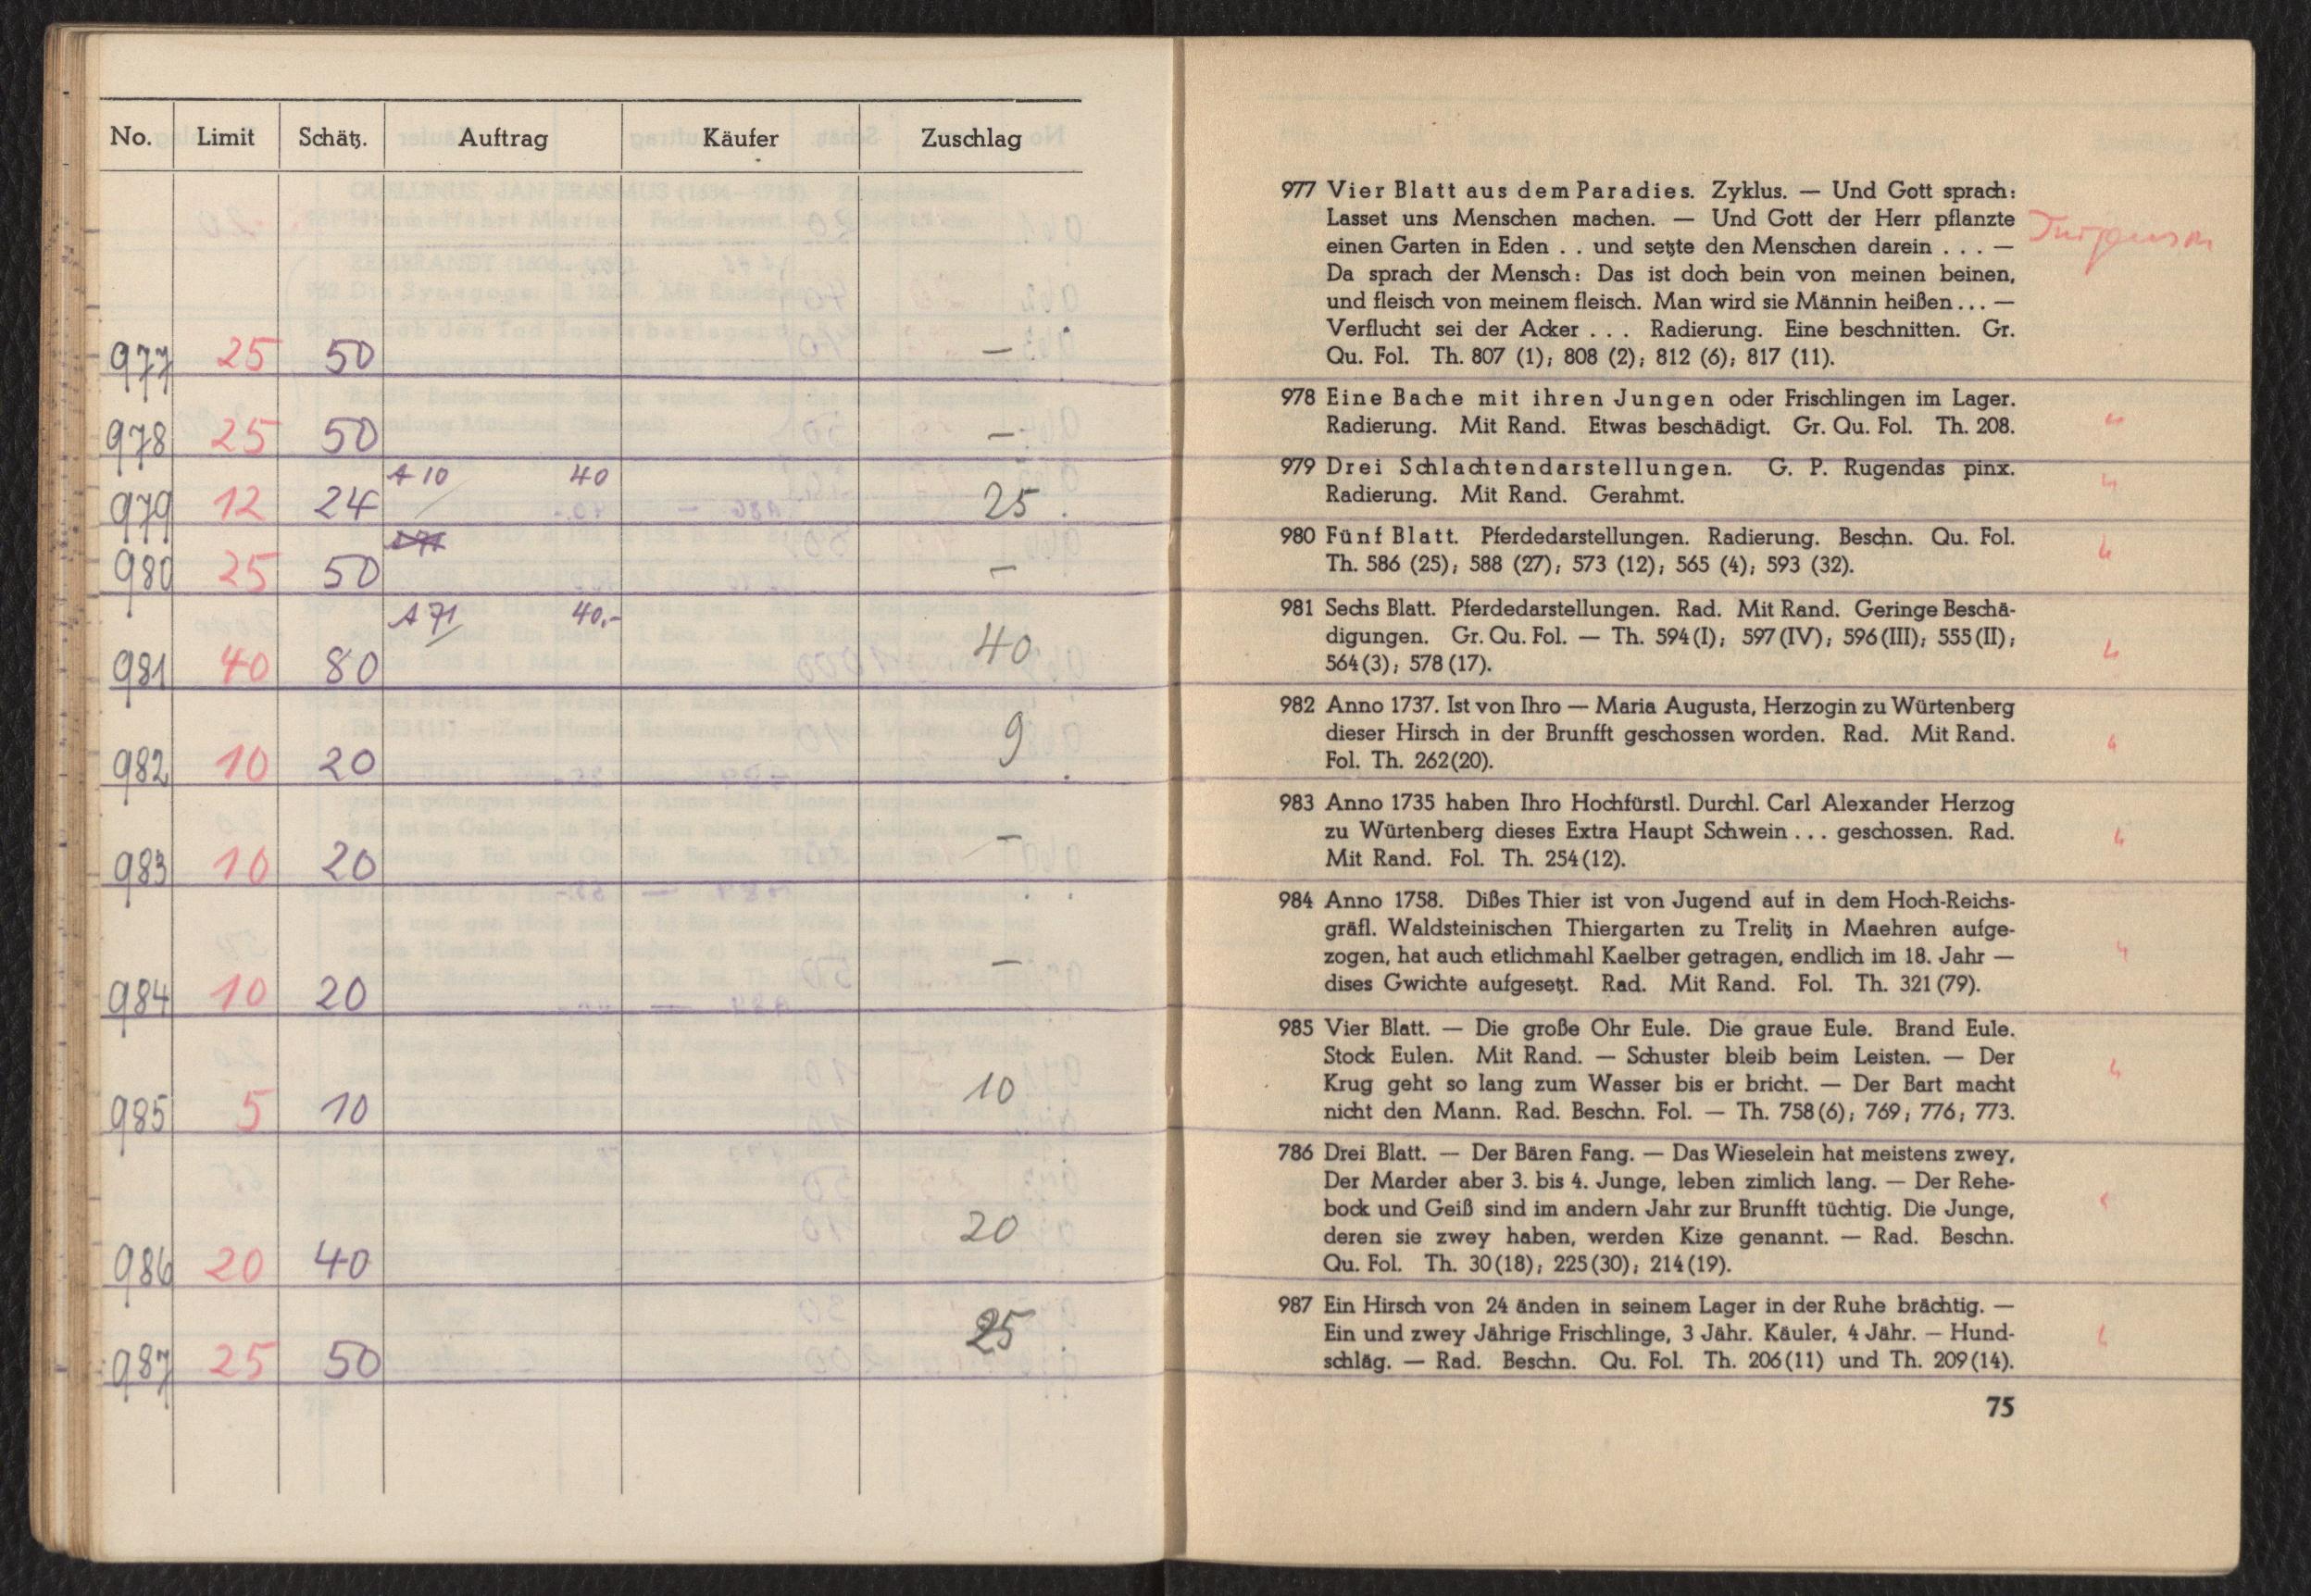 No. Limit Schätz. Auftrag Käufer Zuschlag
977 25 50 —
978 25 50 —
A 10 40
979 12 24 25
980 25 50 —
A 71 40.-
981 40 80 40
982 10 20 9
983 10 20 —
984 10 20 —
985 5 10 10
986 20 40 20
987 25 50 25
977 Vier Blatt aus dem Paradies. Zyklus. — Und Gott sprach:
Lasset uns Menschen machen. — Und Gott der Herr pflanzte
einen Garten in Eden . . und setzte den Menschen darein . . . —
Da sprach der Mensch: Das ist doch bein von meinen beinen,
und fleisch von meinem fleisch. Man wird sie Männin heißen . . . —
Verflucht sei der Acker . . . Radierung. Eine beschnitten. Gr.
Qu. Fol. Th. 807 (1); 808 (2); 812 (6); 817 (11).
978 Eine Bache mit ihren Jungen oder Frischlingen im Lager.
Radierung. Mit Rand. Etwas beschädigt. Gr. Qu. Fol. Th. 208.
979 Drei Schlachtendarstellungen. G. P. Rugendas pinx.
Radierung. Mit Rand. Gerahmt.
980 Fünf Blatt. Pferdedarstellungen. Radierung. Beschn. Qu. Fol.
Th. 586 (25); 588 (27); 573 (12); 565 (4); 593 (32).
981 Sechs Blatt. Pferdedarstellungen. Rad. Mit Rand. Geringe Beschä-
digungen. Gr. Qu. Fol. — Th. 594 (I); 597 (IV); 596 (III); 555 (II);
564 (3); 578 (17).
982 Anno 1737. Ist von Ihro — Maria Augusta, Herzogin zu Würtenberg
dieser Hirsch in der Brunfft geschossen worden. Rad. Mit Rand.
Fol. Th. 262 (20).
983 Anno 1735 haben Ihro Hochfürstl. Durchl. Carl Alexander Herzog
zu Würtenberg dieses Extra Haupt Schwein . . . geschossen. Rad.
Mit Rand. Fol. Th. 254 (12).
984 Anno 1758. Dißes Thier ist von Jugend auf in dem Hoch-Reichs-
gräfl. Waldsteinischen Thiergarten zu Trelitz in Maehren aufge-
zogen, hat auch etlichmahl Kaelber getragen, endlich im 18. Jahr —
dises Gwichte aufgesetzt. Rad. Mit Rand. Fol. Th. 321 (79).
985 Vier Blatt. — Die große Ohr Eule. Die graue Eule. Brand Eule.
Stock Eulen. Mit Rand. — Schuster bleib beim Leisten. — Der
Krug geht so lang zum Wasser bis er bricht. — Der Bart macht
nicht den Mann. Rad. Beschn. Fol. — Th. 758 (6); 769; 776; 773.
786 Drei Blatt. — Der Bären Fang. — Das Wieselein hat meistens zwey,
Der Marder aber 3. bis 4. Junge, leben zimlich lang. — Der Rehe-
bock und Geiß sind im andern Jahr zur Brunfft tüchtig. Die Junge,
deren sie zwey haben, werden Kize genannt. — Rad. Beschn.
Qu. Fol. Th. 30 (18); 225 (30); 214 (19).
987 Ein Hirsch von 24 änden in seinem Lager in der Ruhe brächtig. —
Ein und zwey Jährige Frischlinge, 3 Jähr. Käuler, 4 Jähr. — Hund-
schläg. — Rad. Beschn. Qu. Fol. Th. 206 (11) und Th. 209 (14).
75